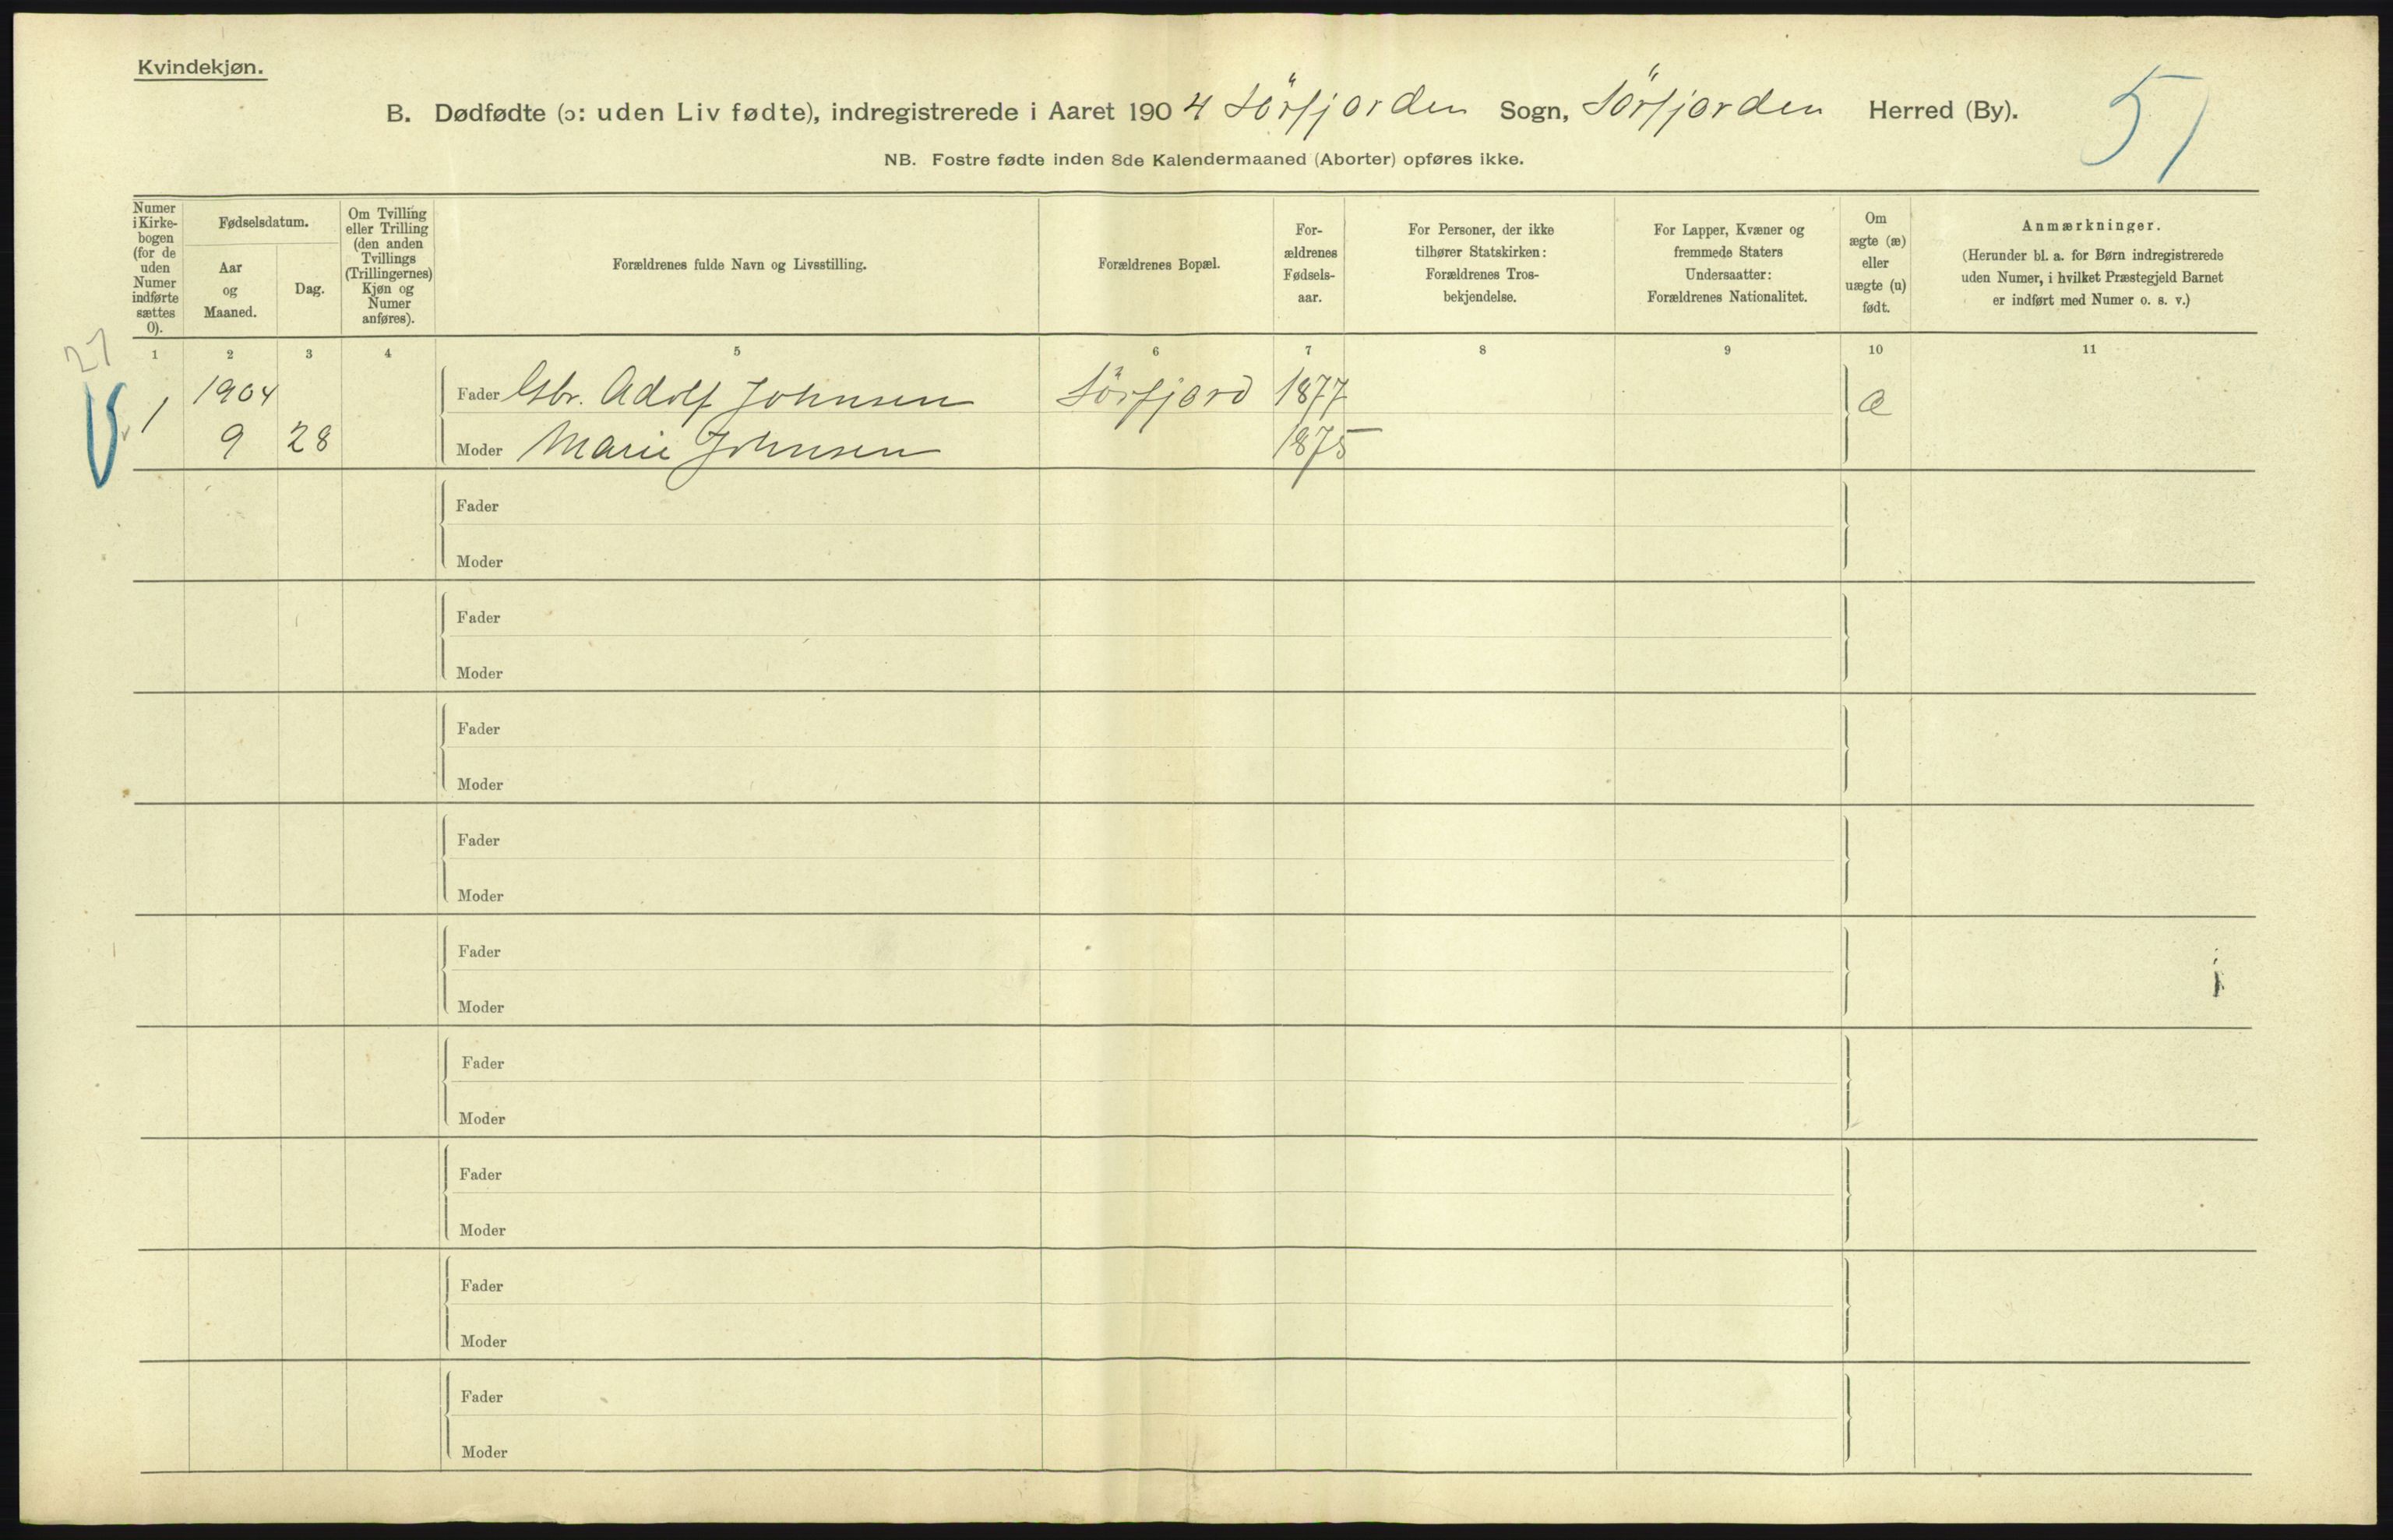 Kvindekjøn.
B. Dødfødte (ɔ: uden Liv fødte), indregistrerede i Aaret 1904 Sörfjorden Sogn, Sörfjorden Herred (By).
51
NB. Fostre fødte inden 8de Kalendermaaned (Aborter) opføres ikke.
Numer i Kirke-bogen (for de uden Numer indførte sættes 0).
Fødselsdatum.
Aar og Maaned.
Dag.
Om Tvilling eller Trilling (den anden Tvillings (Trillingernes) Kjøn og Numer anføres).
Forældrenes fulde Navn og Livsstilling.
Forældrenes Bopæl.
For-ældrenes Fødsels-aar.
For Personer, der ikke tilhører Statskirken: Forældrenes Tros-bekjendelse.
For Lapper, Kvæner og fremmede Staters Undersaatter: Forældrenes Nationalitet.
Om ægte (æ) eller uægte (u) født.
Anmærkninger.
(Herunder bl. a. for Børn indregistrerede uden Numer, i hvilket Præstegjeld Barnet er indført med Numer o. s. v.)
1 2 3 4 5 6 7 8 9 10 11
27
1 1904 Fader Gbr. Adolf Johnsen Sörfjord 1877 æ
9 28 Moder Marie Johnsen 1875
Fader
Moder
Fader
Moder
Fader
Moder
Fader
Moder
Fader
Moder
Fader
Moder
Fader
Moder
Fader
Moder
Fader
Moder